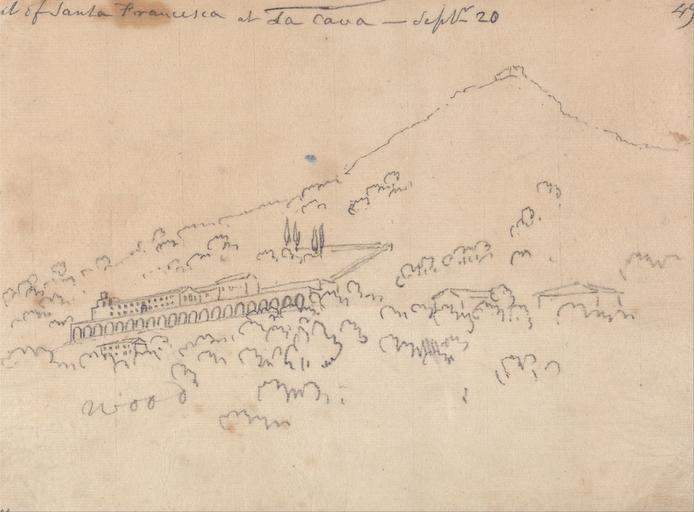 of Santa Francesca at La Cava — Septr. 20
wood